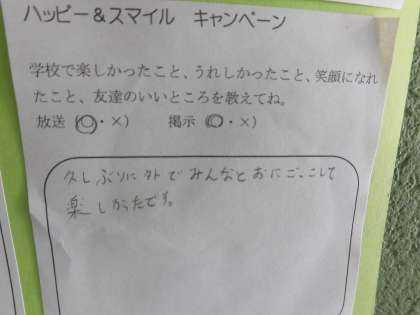 ハッピー＆スマイル　キャンペーン
学校で楽しかったこと、うれしかったこと、笑顔になれ
たこと、友達のいいところを教えてね。
放送（○・×）　　掲示（○・×）
久しぶりに外でみんなとおにごっこして
楽しかったです。